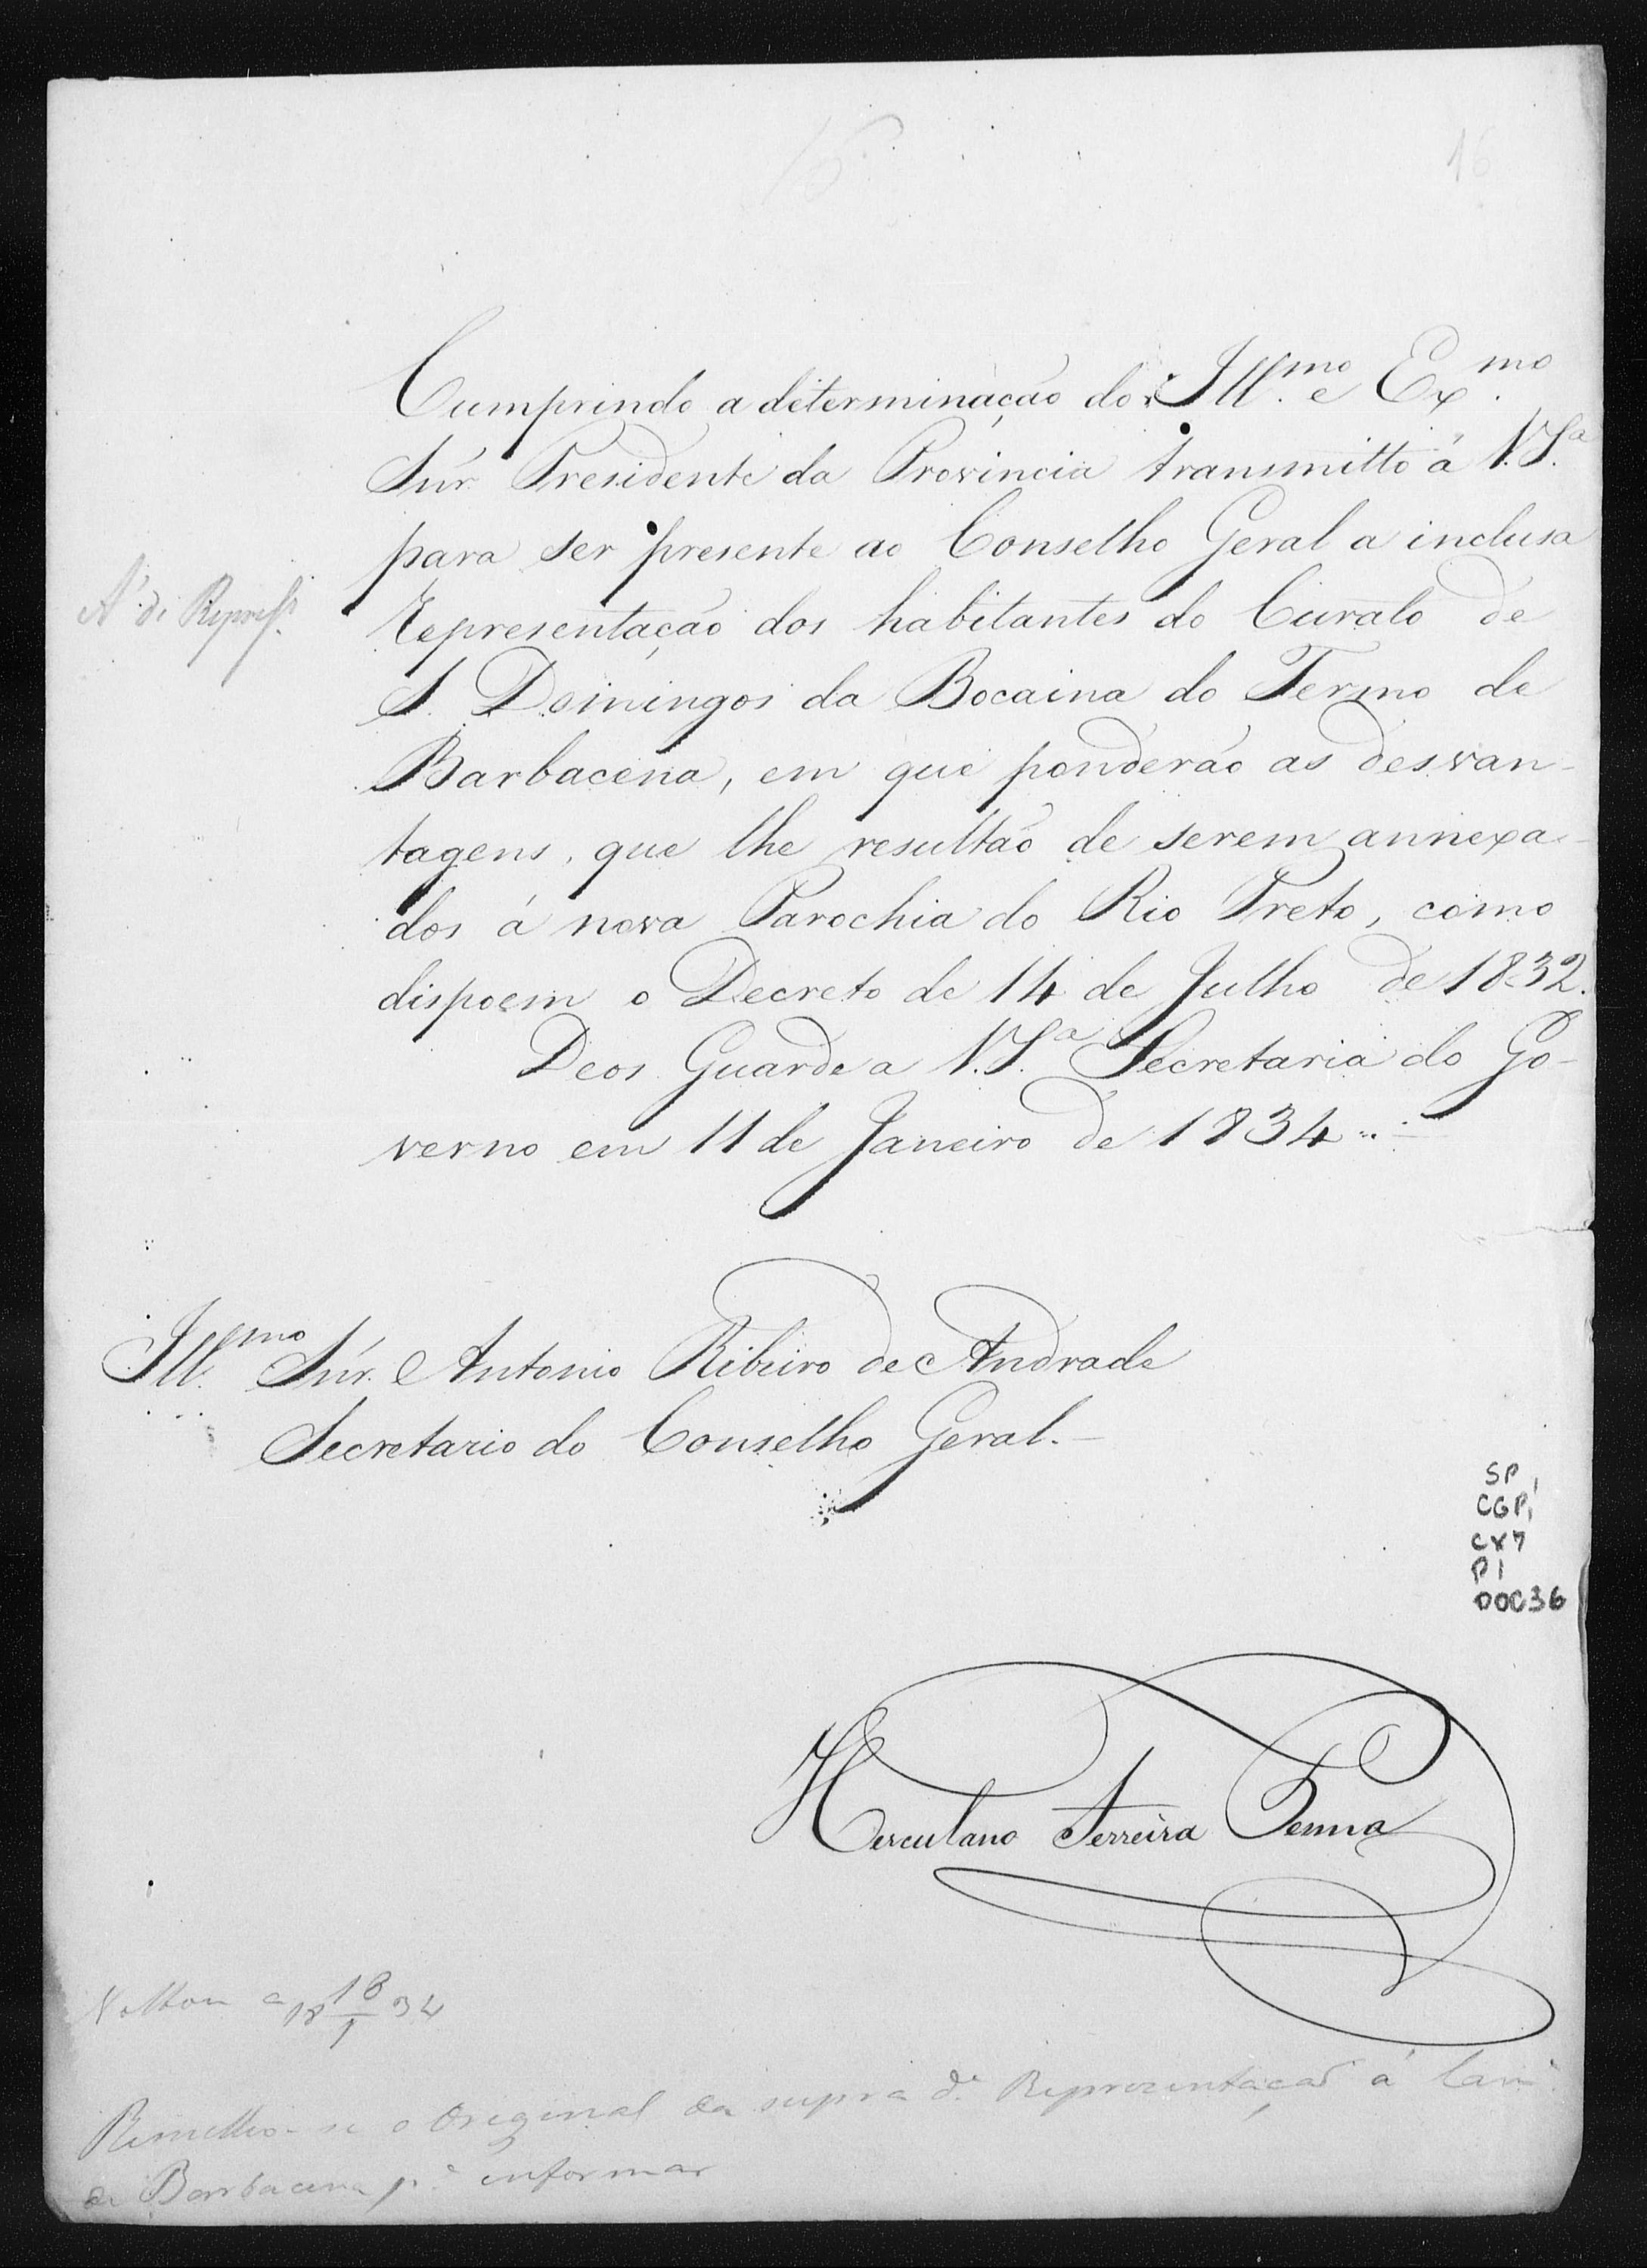 16
Cumprindo a determinação do Ill.mo e Ex.mo
Snr. Presidente da Provincia transmitto á V.S.a
para ser presente ao Conselho Geral a inclusa
Representação dos habitantes do Curato de
S. Domingos da Bocaina do Termo de
Barbacena, em que ponderão as desvan-
tagens, que lhe resultão de serem annexa-
dos á nova Parochia do Rio Preto, como
dispoem o Decreto de 14 de Julho de 1832.
Deos Guarde a V.S.a Secretaria do Go-
verno em 11 de Janeiro de 1834
A' de Repres.
Ill.mo Snr. Antonio Ribeiro de Andrade
Secretario do Conselho Geral.
SP
CGP1
CX7
P1
DOC36
Herculano Ferreira Penna
Voltou a 18 18/1 34
Remetteo-se o Original da supra d.a Representação á Cam.
de Barbacena p.a informar